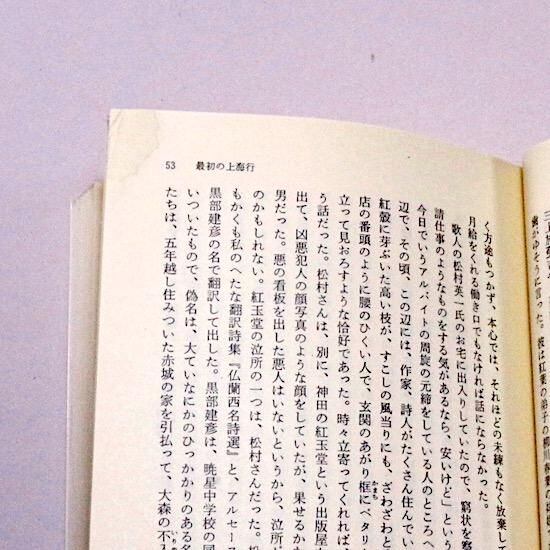 53 最初の上海行
く方途もつかず、本心では、それほどの未練もなく放棄し
月給をくれる働き口でもなければ話にならなかった。
歌人の松村英一氏のお宅に出入りしていたので、窮状を察
請仕事のようなものをする気があるなら、安いけど」という
今日でいうアルバイトの周旋の元締をしている人のところへ
辺で、その頃、この辺には、作家、詩人がたくさん住んでい
紅殻に芽ぶいた高い枝が、すこしの風当りにも、ざわざわと
店の番頭のように腰のひくい人で、玄関のあがり框にペタリ
かまち
立って見おろすような恰好であった。時々立寄ってくれれば、
う話だった。松村さんは、別に、神田の紅玉堂という出版屋
出て、凶悪犯人の顔写真のような顔をしていたが、果せるか
男だった。悪の看板を出した悪人はいないというから、泣所
のかもしれない。紅玉堂の泣所の一つは、松村さんだった。
もかくも私のへたな翻訳詩集『仏蘭西名詩選』と、アルセー
黒部建彦の名で翻訳して出した。黒部建彦は、暁星中学校の同
いついたもので、偽名は、大ていなにかのひっかかりのある名
たちは、五年越し住みついた赤城の家を引払って、大森の不入